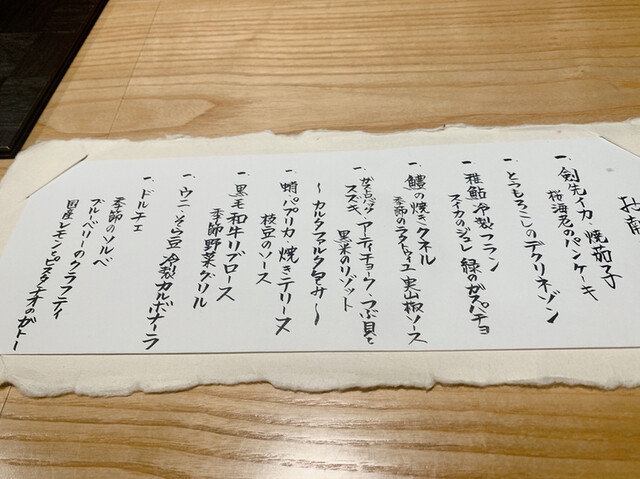 一、剣先イカ 焼茄子
桜海老のパンケーキ
一、とうもろこしのデクリネゾン
一、稚鮎 冷製フラン
スイカのジュレ 緑のガスパチョ
一、鰻の焼きクネル
季節のラタトゥイユ 実山椒ソース
一、アーティチョーク・つぶ貝と
スズキ、黒米のリゾット
〜カルタファタ包み〜
一、蛸パプリカ・焼きテリーヌ
枝豆のソース
一、黒毛和牛リブロース
季節野菜グリル
一、ウニ・そら豆 冷製カルボナーラ
一、ドルチェ
季節のソルベ
ブルーベリーのクラフティ
国産レモンとピスタチオのガトー